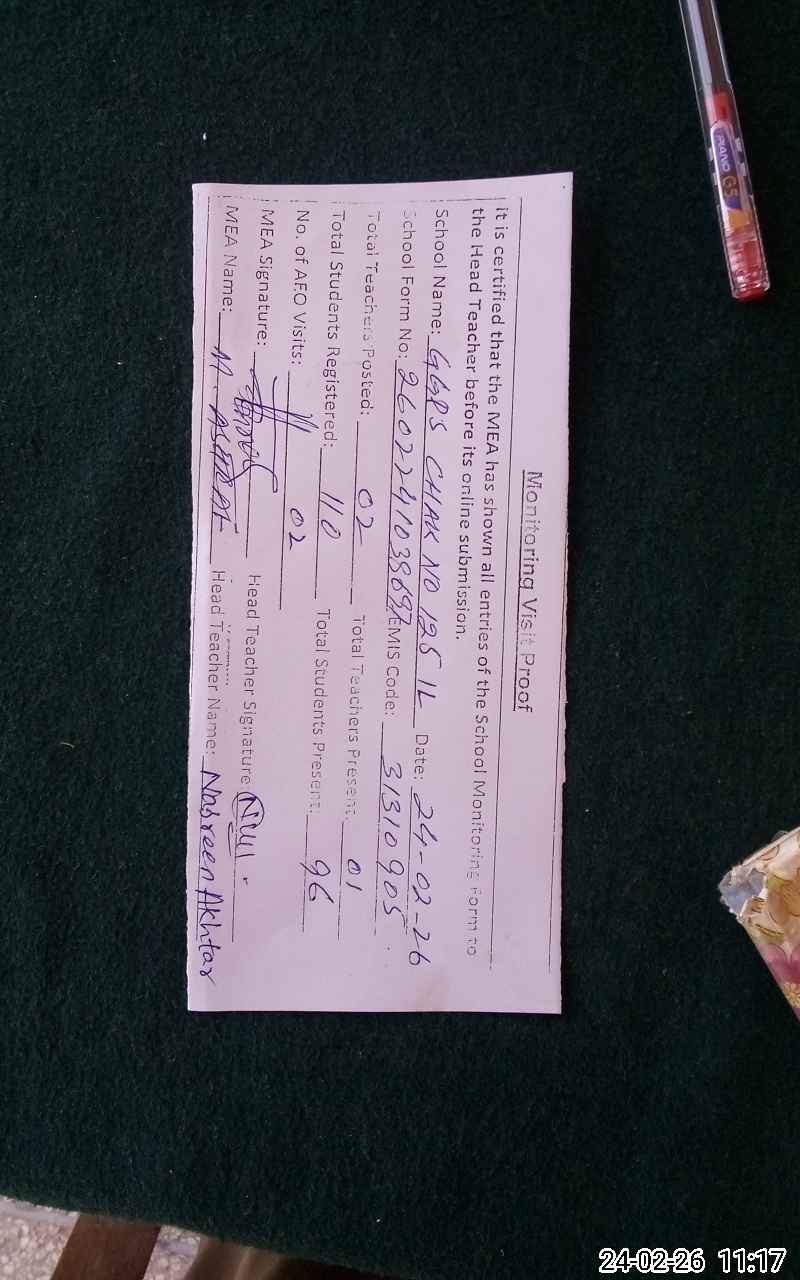 Monitoring Visit Proof
It is certified that the MEA has shown all entries of the School Monitoring Form to
the Head Teacher before its online submission.
School Name: GGPS CHAK NO 125 1L Date: 24-02-26
School Form No: 26022410386 EMIS Code: 31310905
Total Teachers Posted: 02 Total Teachers Present: 01
Total Students Registered: 110 Total Students Present: 96
No. of AEO Visits: 02
MEA Signature: Head Teacher Signature:
MEA Name: M. ASHRAF Head Teacher Name: Nasreen Akhtar
PIANO G5
24-02-26 11:17